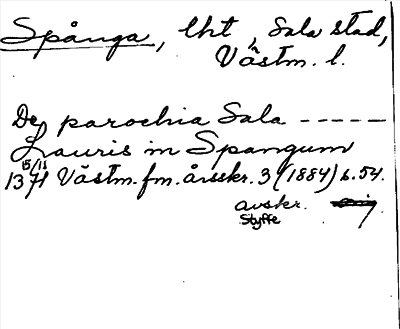 Spånga, lht, Sala stad,
Västm. l.
De parochia Sala -----
Lauris in Spangum
15/11
1371 Västm. fm. årsskr. 3 (1884) s. 54.
avskr.
Styffe